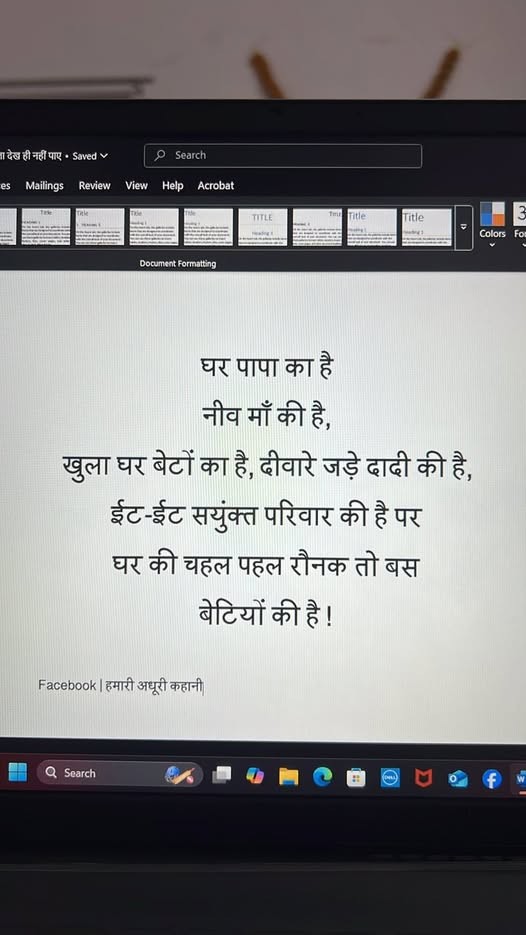 ा देख ही नहीं पाए • Saved
Search
es Mailings Review View Help Acrobat
Title Title Title Title TITLE Title Title Title
Heading 1 Heading 1 Heading 1 Heading 1 Heading 1
Colors
Document Formatting
घर पापा का है
नीव माँ की है,
खुला घर बेटों का है, दीवारे जड़े दादी की है,
ईट-ईट सयुंक्त परिवार की है पर
घर की चहल पहल रौनक तो बस
बेटियों की है !
Facebook | हमारी अधूरी कहानी
Search
DELL